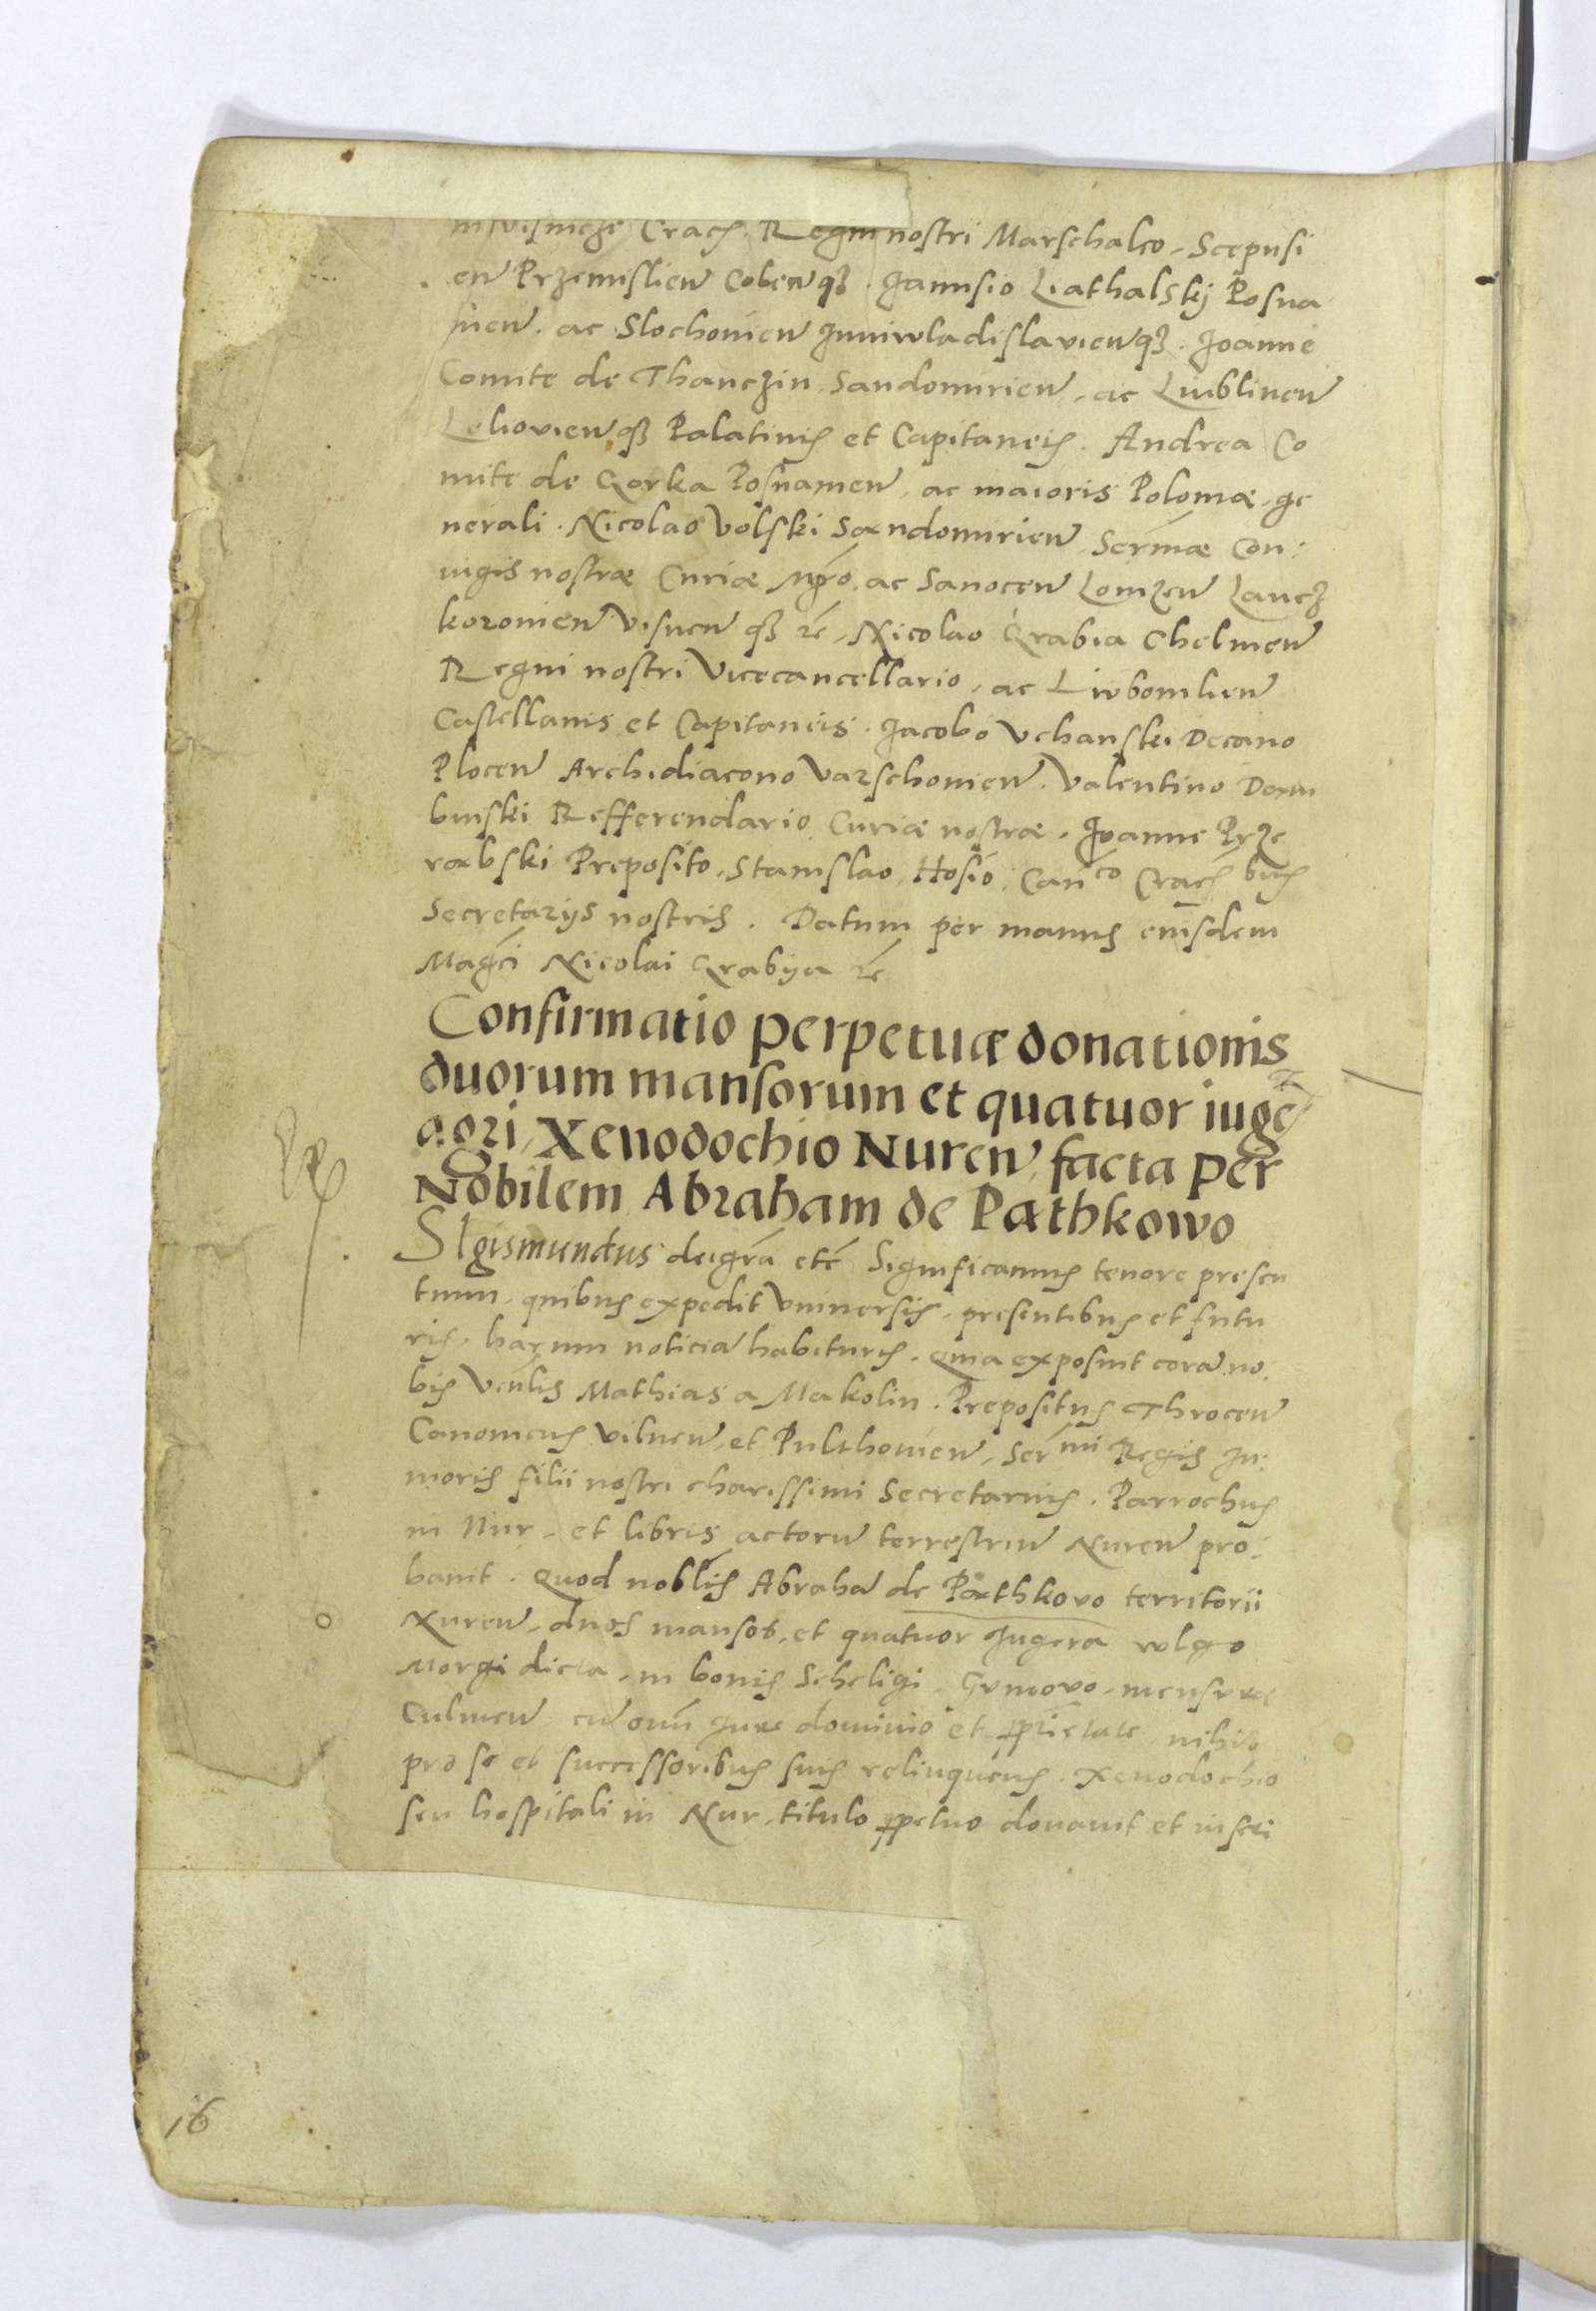 in Visnicze Crac. Regni nostri Marschalco, Scepusi
en Przemislien Colenqȝ. Janusio Lathalskij Posna
nien. ac Slochovien Juniwladislavienqȝ. Joanne
Comite de Thanczin, Sandomirien, ac Lublinen
Lelovienqȝ Palatinis et Capitaneis. Andrea Co
mite de Gorka Posnanien, ac maioris Poloniæ ge
nerali. Nicolao Volski Sandomirien, Sermæ Con:
iugis nostræ Curiæ Mgro. ac Sanocen Lomzen Lancz
koronien Visnen qȝ rc, Nicolao Grabia Chelmen
Regni nostri Vicecancellario, ac Liubomlien
Castellanis et Capitaneis. Jacobo Vchanski Decano
Plocen Archidiacono Varschovien. Valentino Dem
binski Refferendario Curiæ nostræ. Joanne Prze
rabski Preposito, Stanislao Hosio, Canco Crac bus
Secretarijs nostris. Datum per manus eiusdem
Magci Nicolai Grabya rc
Confirmatio perpetuæ donationis
duorum mansorum et quatuor iuge
agri, Xenodochio Nuren, facta per
Nobilem Abraham de Pathkowo
Sigismundus dei gra etc Significamus tenore presen
tium, quibus expedit Vniversis, presentibus et futu
ris, harum noticia habituris. Quia exposuit cora no:
bis Venlis Mathias a Makolin. Prepositus Throcen
Canonicus Vilnen, et Pulthovien, Sermi Regis Ju:
nioris filii nostri charissimi Secretarius. Parrochus
in Nur, et libris actoru terrestriu Nuren pro:
bavit. Quod noblis Abraha de Pathkovo territorii
Nuren, duos mansos, et quatuor Jugera vulgo
Morgi dicta, in bonis Scheligi, Gumovo, mensuræ
Culmen, cu omi Jure dominio et pprietate, nihil
pro se et successoribus suis relinquens. Xenodochio
seu hospitali in Nur, titulo ppetuo donavit et inscri
16